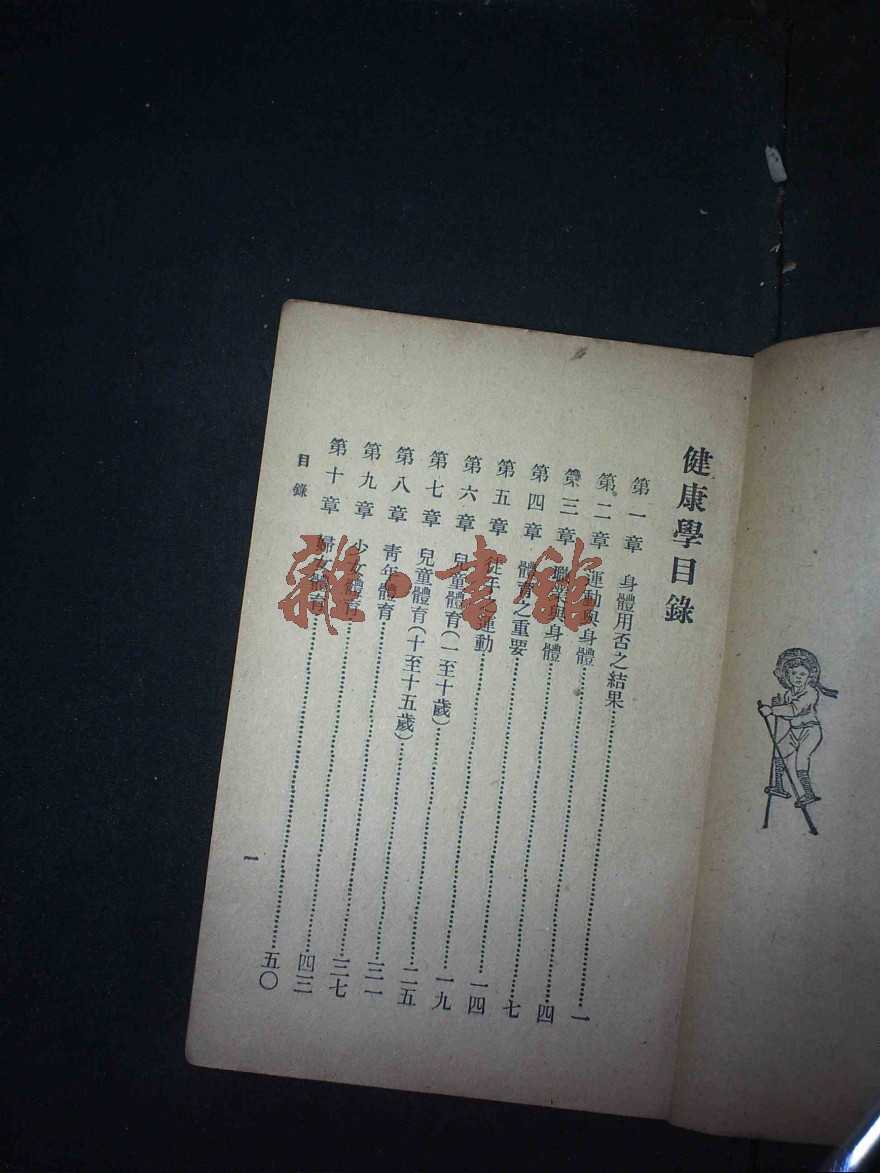 健康學目錄
第一章 身體用否之結果……一
第二章 運動與身體……四
第三章 職業與身體……七
第四章 體育之重要……一四
第五章 徒手運動……一九
第六章 兒童體育(一至十歲)……二五
第七章 兒童體育(十至十五歲)……三一
第八章 青年體育……三七
第九章 少女體育……四三
第十章 婦女體育……五〇
目錄
一
雜·書館